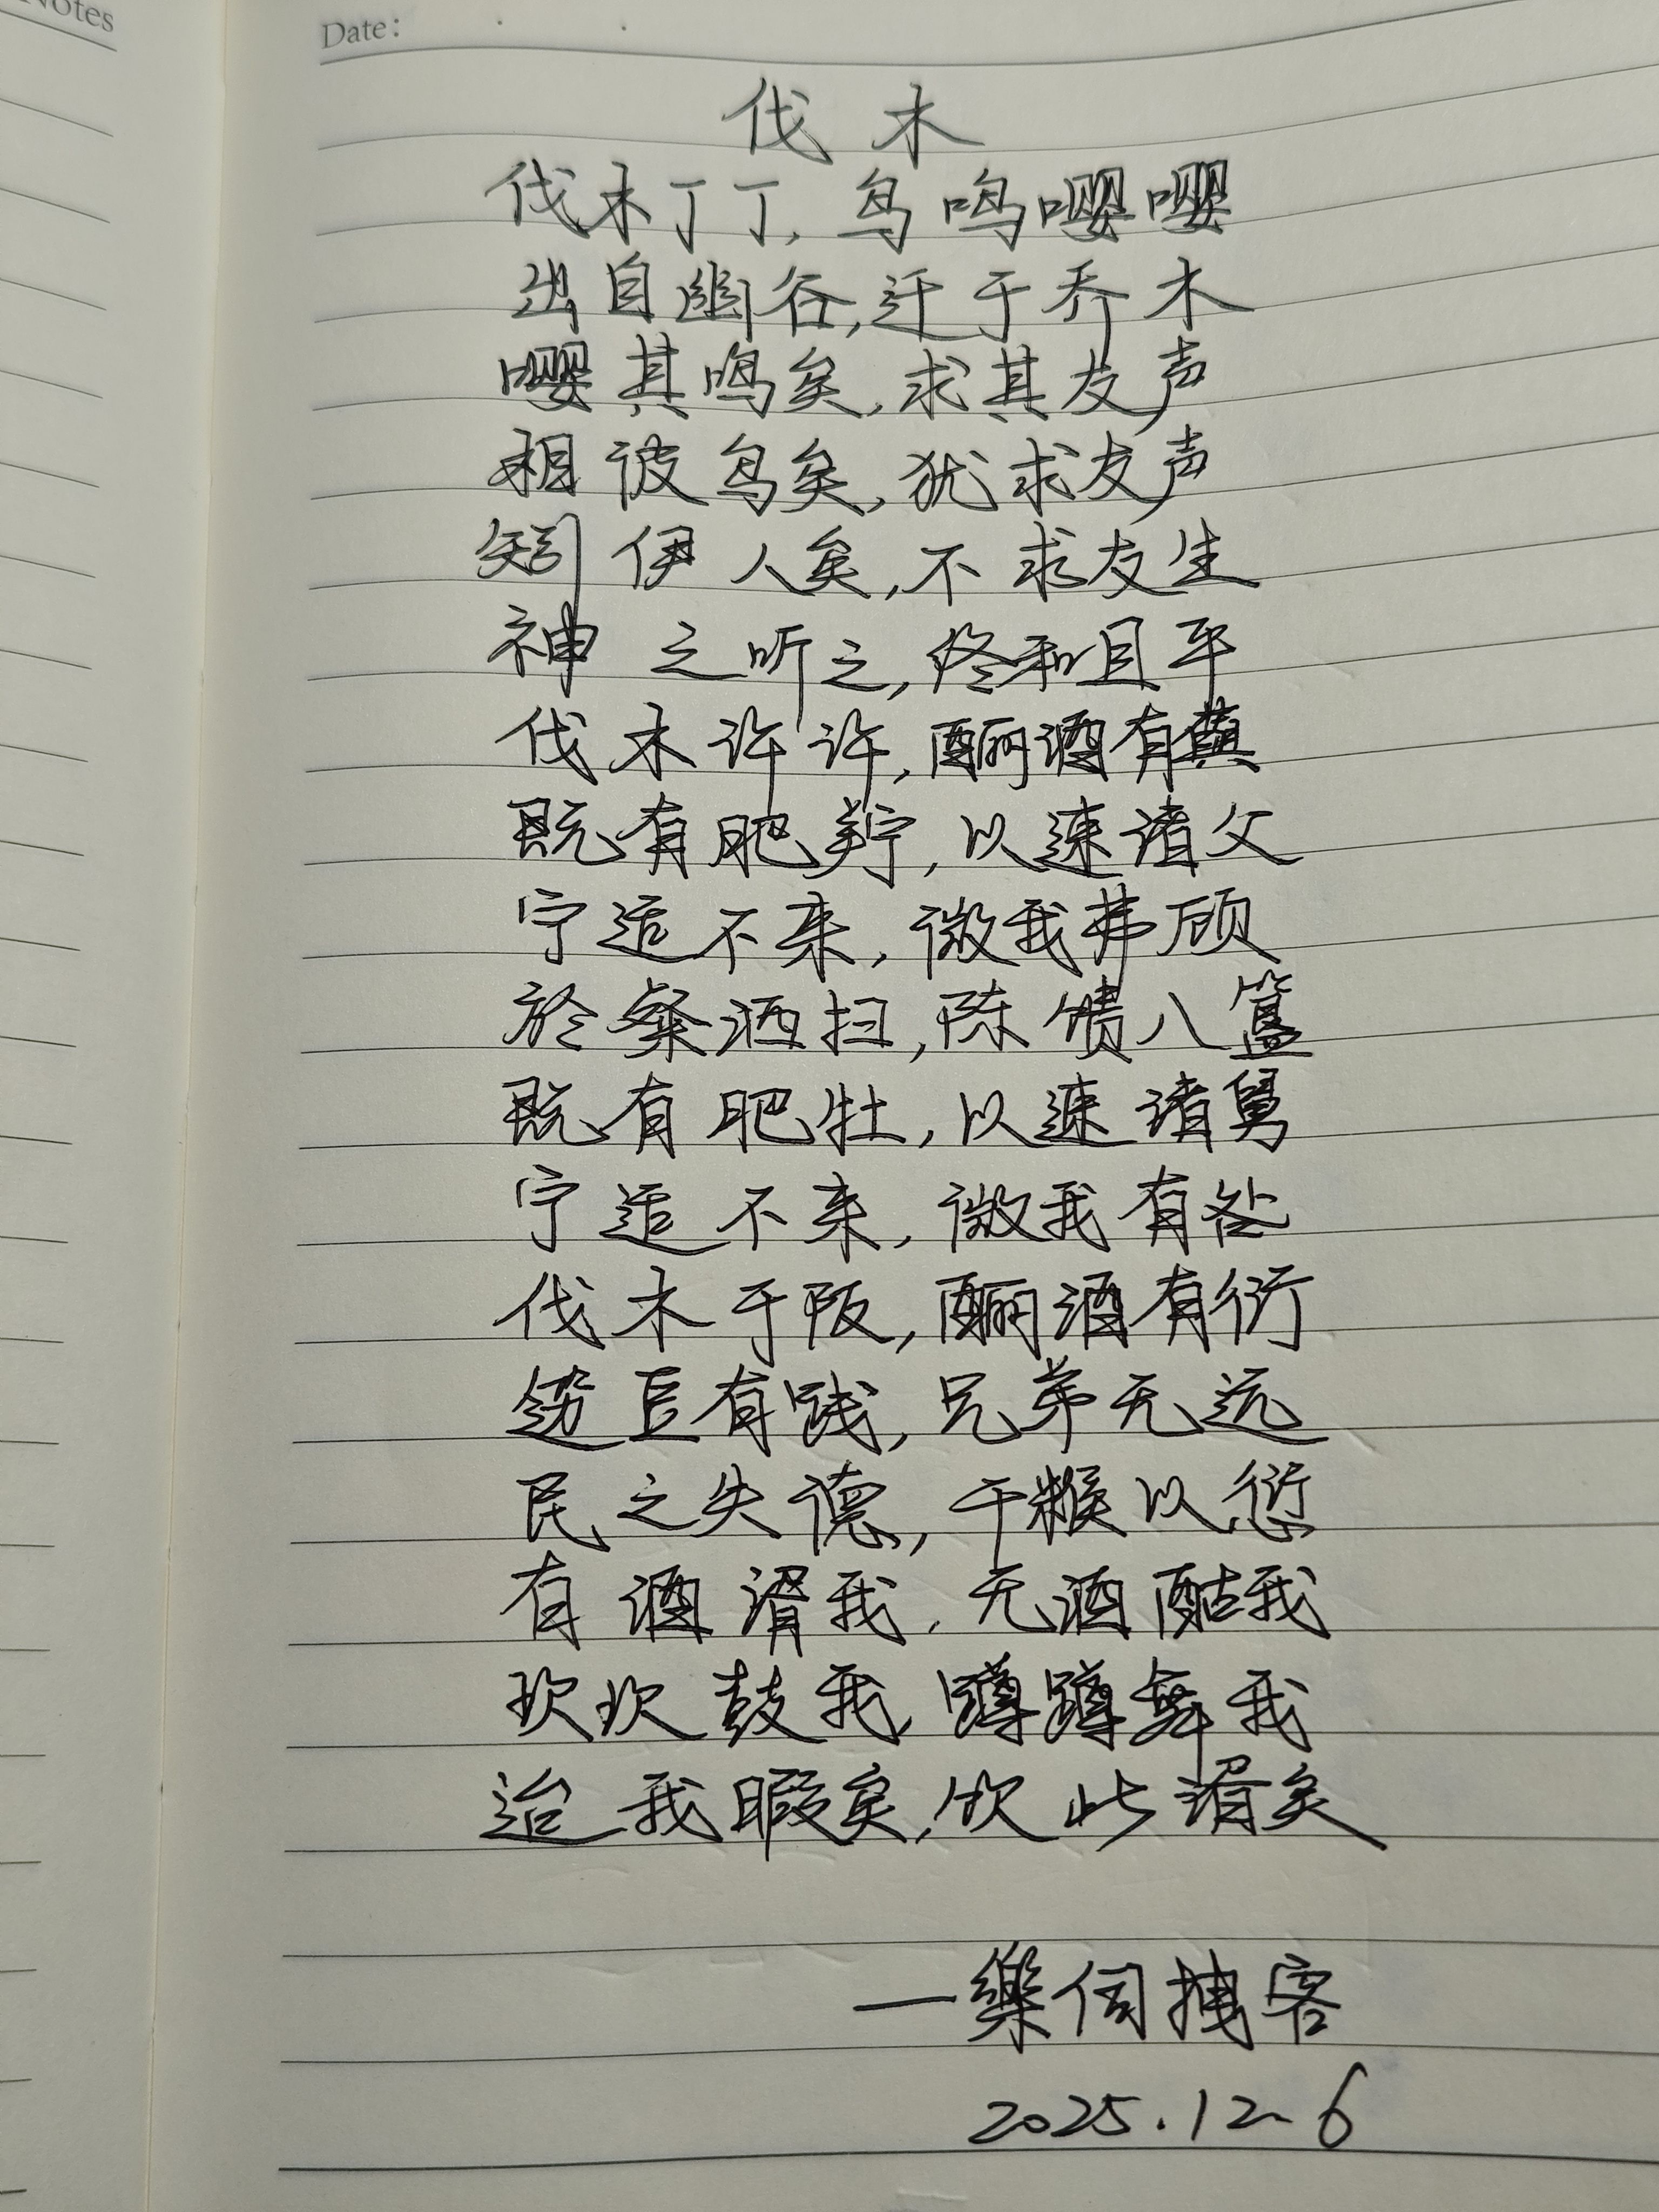 Notes
Date:
伐木
伐木丁丁,鸟鸣嘤嘤
出自幽谷,迁于乔木
嘤其鸣矣,求其友声
相彼鸟矣,犹求友声
矧伊人矣,不求友生
神之听之,终和且平
伐木许许,酾酒有藇
既有肥羜,以速诸父
宁适不来,微我弗顾
於粲洒扫,陈馈八簋
既有肥牡,以速诸舅
宁适不来,微我有咎
伐木于阪,酾酒有衍
笾豆有践,兄弟无远
民之失德,干糇以愆
有酒湑我,无酒酤我
坎坎鼓我,蹲蹲舞我
迨我暇矣,饮此湑矣
一樂伺拽客
2025.12.6